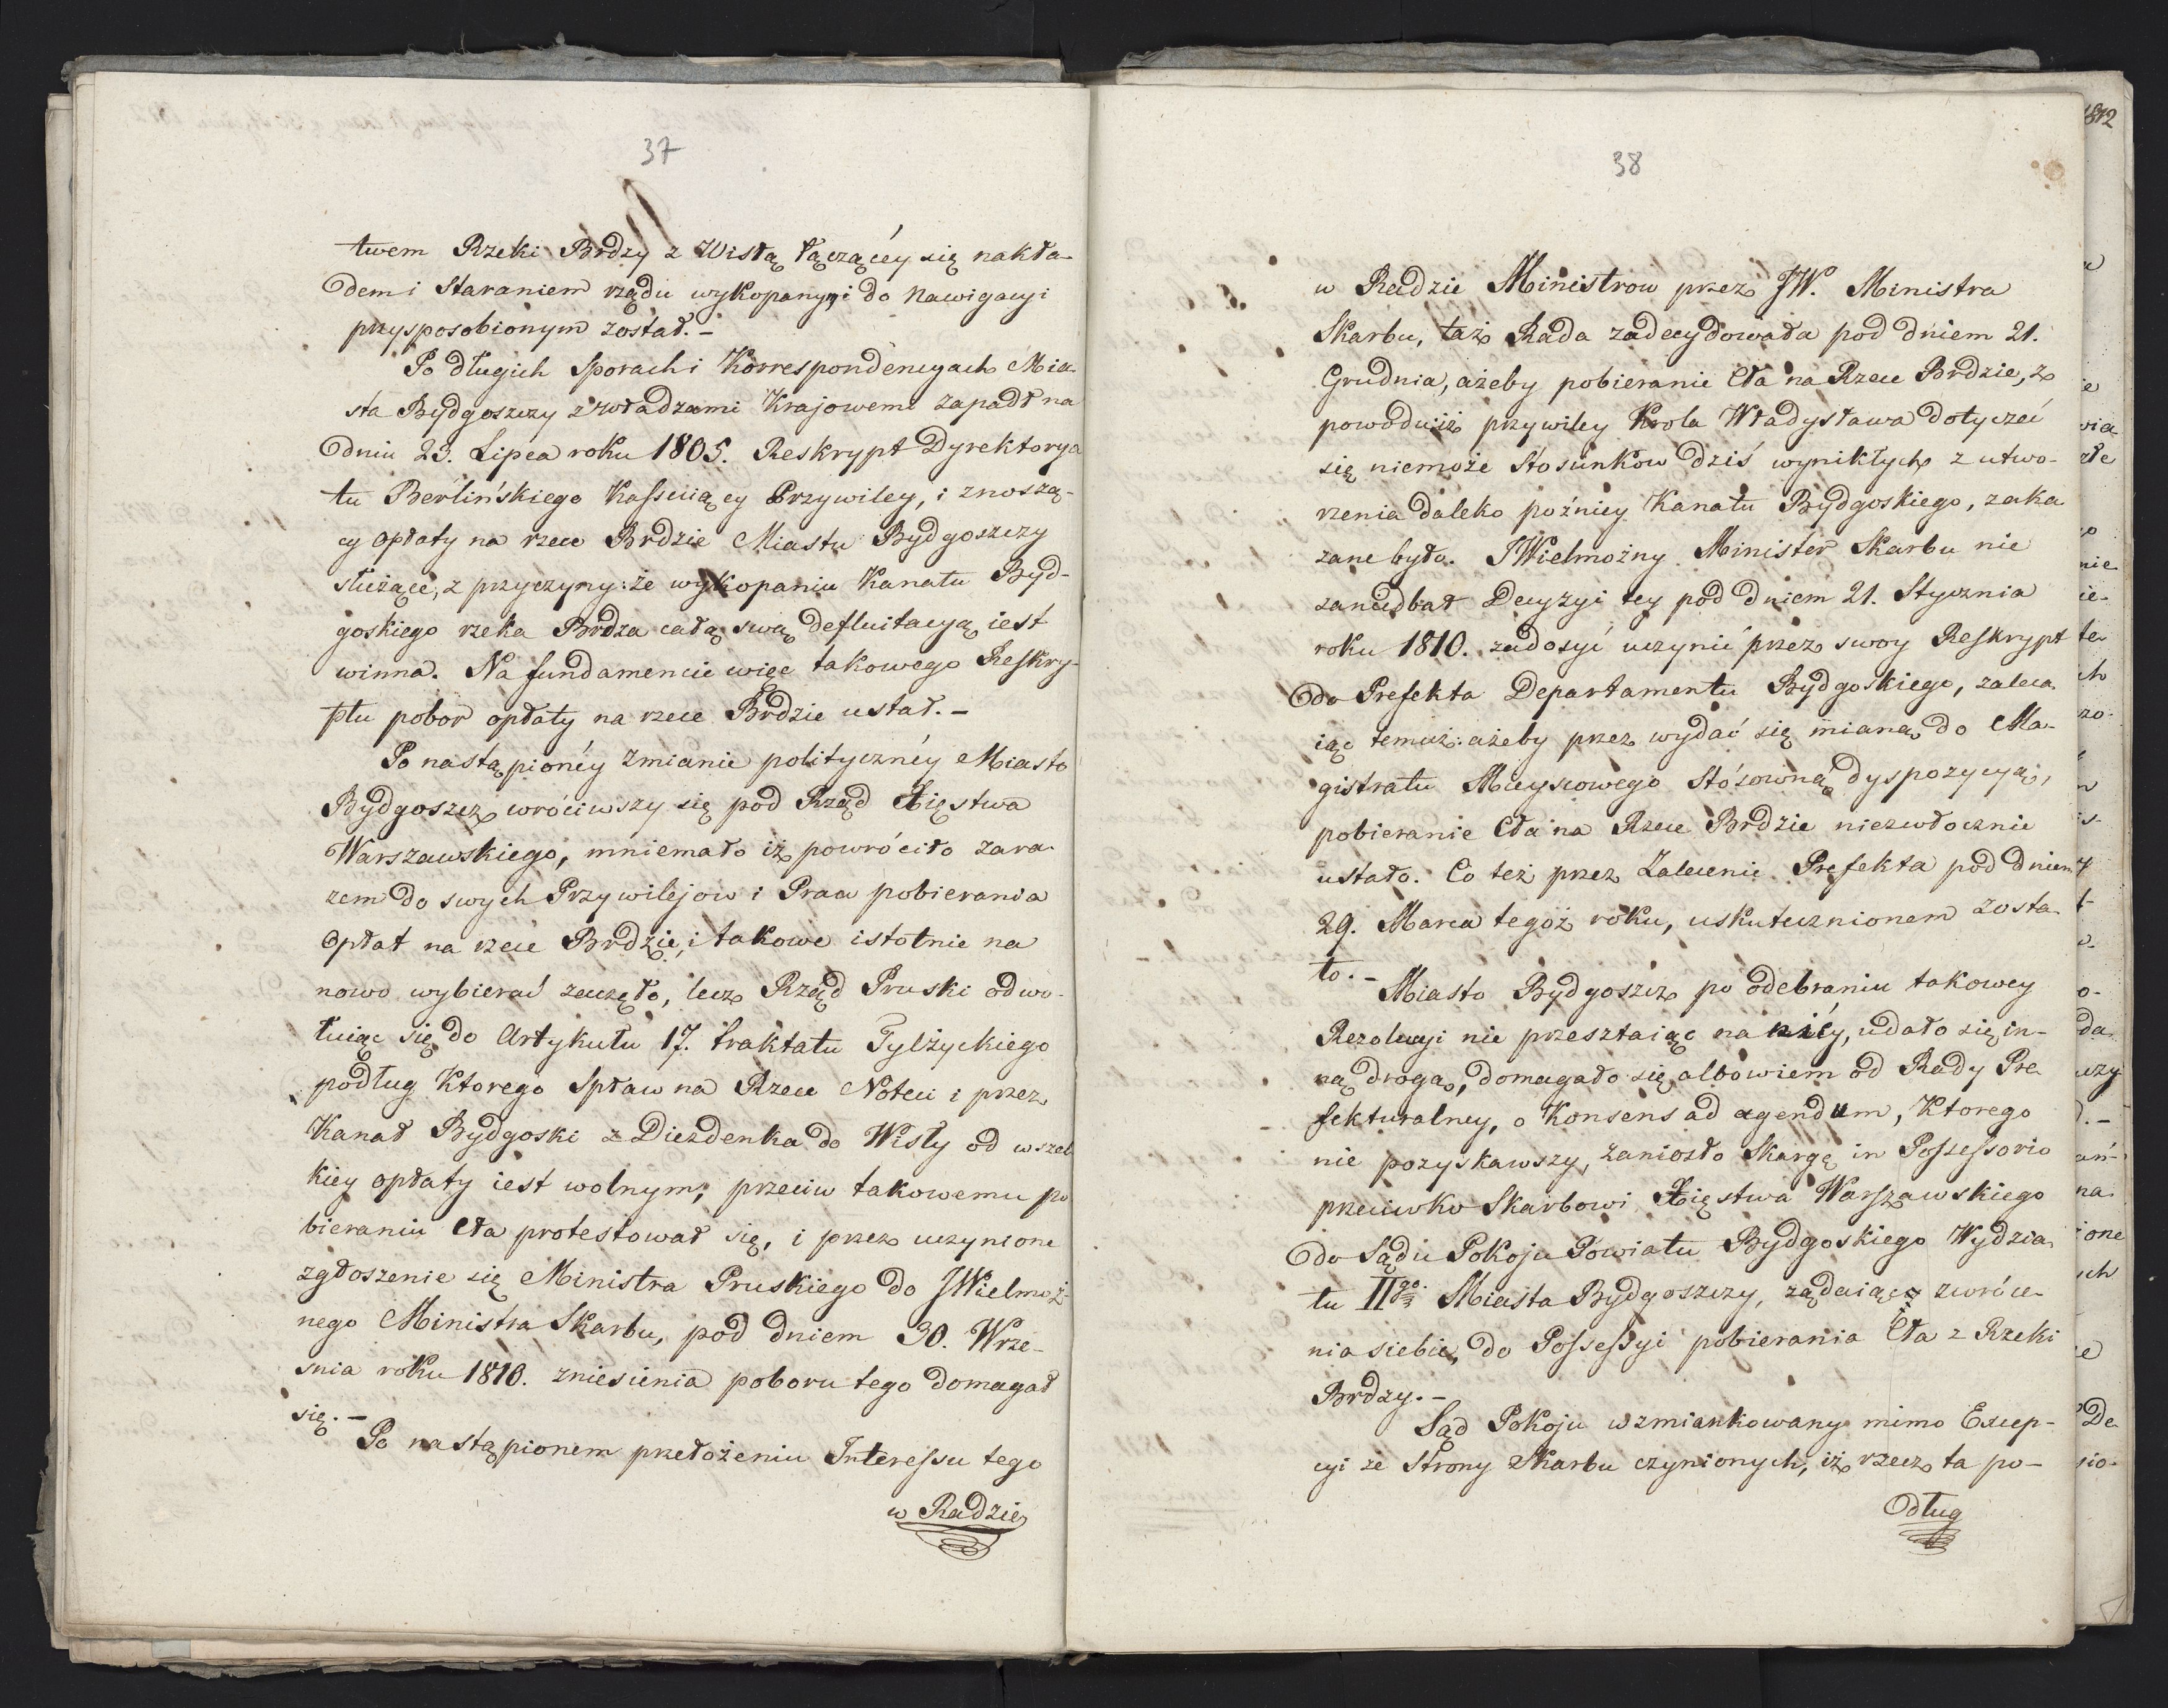 37
twem Rzeki Brdzy z Wisłą łączącéy się nakła-
dem i staraniem rządu wykopanym i do nawigacyi
przysposobionym został. –
Po długich sporach i Korrespondencyach Mia-
sta Bydgoszczy z władzami Krajowemi zapadł na
dniu 23. Lipca roku 1805. Reskrypt Dyrektorya
tu Berlińskiego Kassuiący Przywiley, i znoszą-
cy opłaty na rzece Brdzie Miastu Bydgoszczy
służące, z przyczyny: że wykopaniu Kanału Byd-
goskiego rzeka Brdza całą swą defluitacyą iest
winna. Na fundamencie więc takowego Reskry-
ptu pobor opłaty na rzece Brdzie ustał. –
Po nastąpionéy zmianie politycznéy Miasto
Bydgoszcz wróciwszy się pod Rząd Xięstwa
Warszawskiego, mniemało iż powróciło zara-
zem do swych Przywilejow i Praw pobierania
Opłat na rzece Brdzie, i takowe istotnie na
nowo wybierać zaczęło, lecz Rząd Pruski odwo-
łuiąc się do Artykułu 17. traktatu Tylżyckiego
podług Ktorego Spław na Rzece Noteci i przez
Kanał Bydgoski z Diezdenka do Wisły od wszel
kiey opłaty iest wolnym, przeciw takowemu po
bieraniu Cła protestował się, i przez uczynione
zgłoszenie się Ministra Pruskiego do JWielmoż-
nego Ministra Skarbu, pod dniem 30. Wrze-
snia roku 1810. zniesienia poboru tego domagał
się. –
Po nastąpionem przełożeniu Interessu tego
w Radzie
38
w Radzie Ministrow przez JW. Ministra
Skarbu, taż Rada zadecydowała pod dniem 21.
Grudnia, ażeby pobieranie Cła na Rzece Brdzie, z
powodu: iż przywiley Krola Władysława dotyczeć
się niemoże Stosunkow dziś wynikłych z utwo-
rzenia daleko poźniey Kanału Bydgoskiego, zaka
zane było. JWielmożny Minister Skarbu nie
zaniedbał Decyzyi tey pod dniem 21. Stycznia
roku 1810. zadosyć uczynić przez swoy Reskrypt
do Prefekta Departamentu Bydgoskiego, zaleca
iąc temuż: ażeby przez wydać się mianą do Ma-
gistratu Mieyscowego Stósowną dyspozycyą,
pobieranie Cła na Rzece Brdzie niezwłocznie
ustało. Co też przez Zalecenie Prefekta pod dniem
29. Marca tegoż roku, uskutecznionem zosta-
ło. –
Miasto Bydgoszcz po odebraniu takowey
Rezolucyi nie przestaiąc na niéy, udało się in-
ną drogą, domagało się albowiem od Rady Pre
fekturalney, o Konsens ad agendum, Ktorego
nie pozyskawszy, zaniosło Skargę in Possessorio
przeciwko Skarbowi Xięstwa Warszawskiego
do Sądu Pokoju Powiatu Bydgoskiego Wydzia
łu IIgo Miasta Bydgoszczy, żądaiąc zwróce-
nia siebie, do Possessyi pobierania Cła z Rzeki
Brdzy. –
Sąd Pokoju wzmiankowany mimo Excep-
cyi ze Strony Skarbu czynionych, iż rzecz ta po-
dług
1812